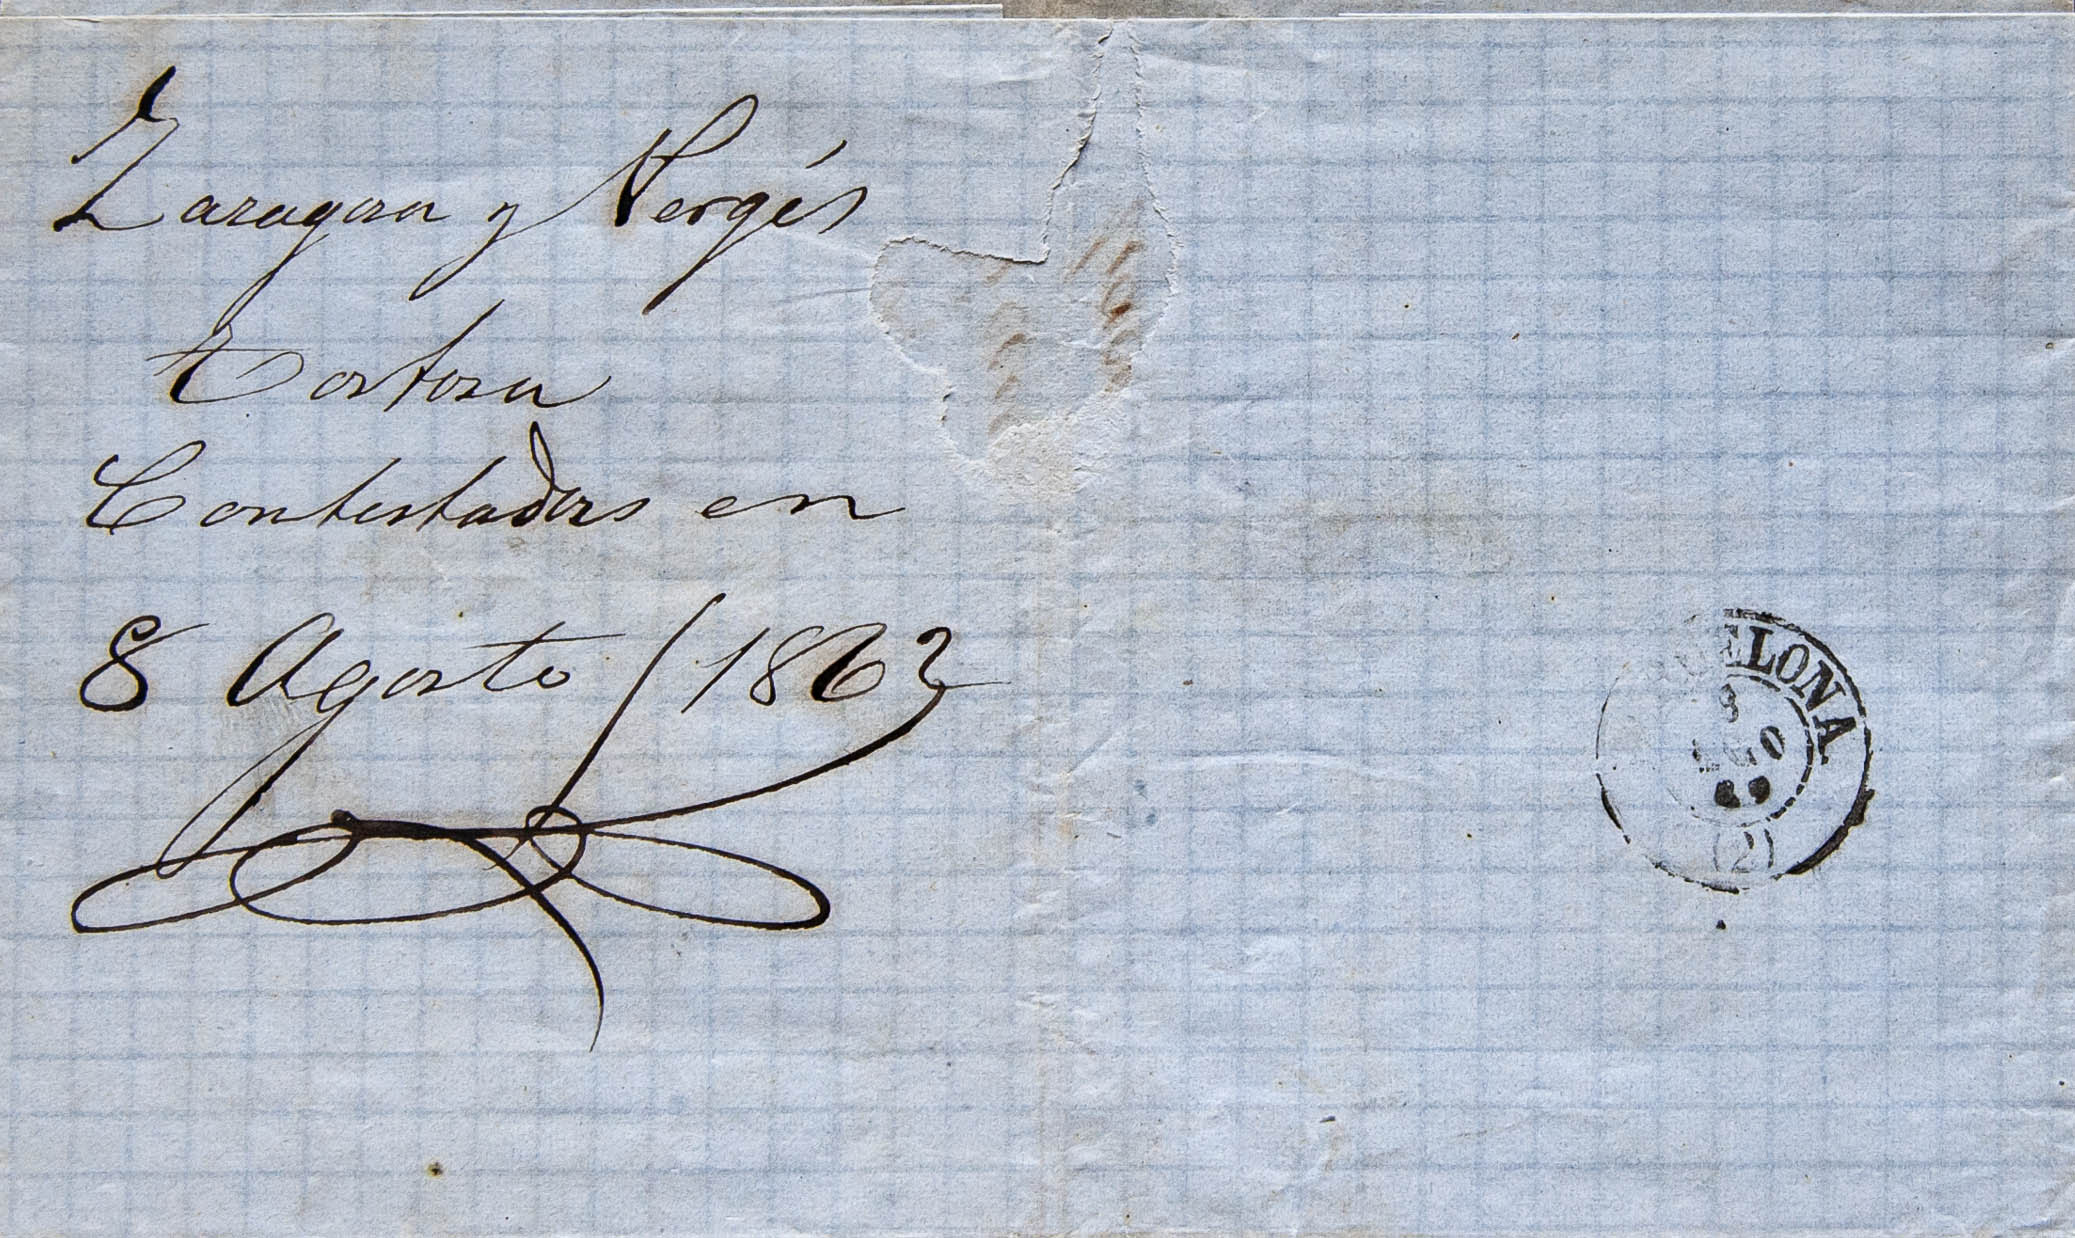 Zaragoza y Vergés
Tortosa
Contestadas en
8 Agosto / 1862
ELONA
8
GO
(2)